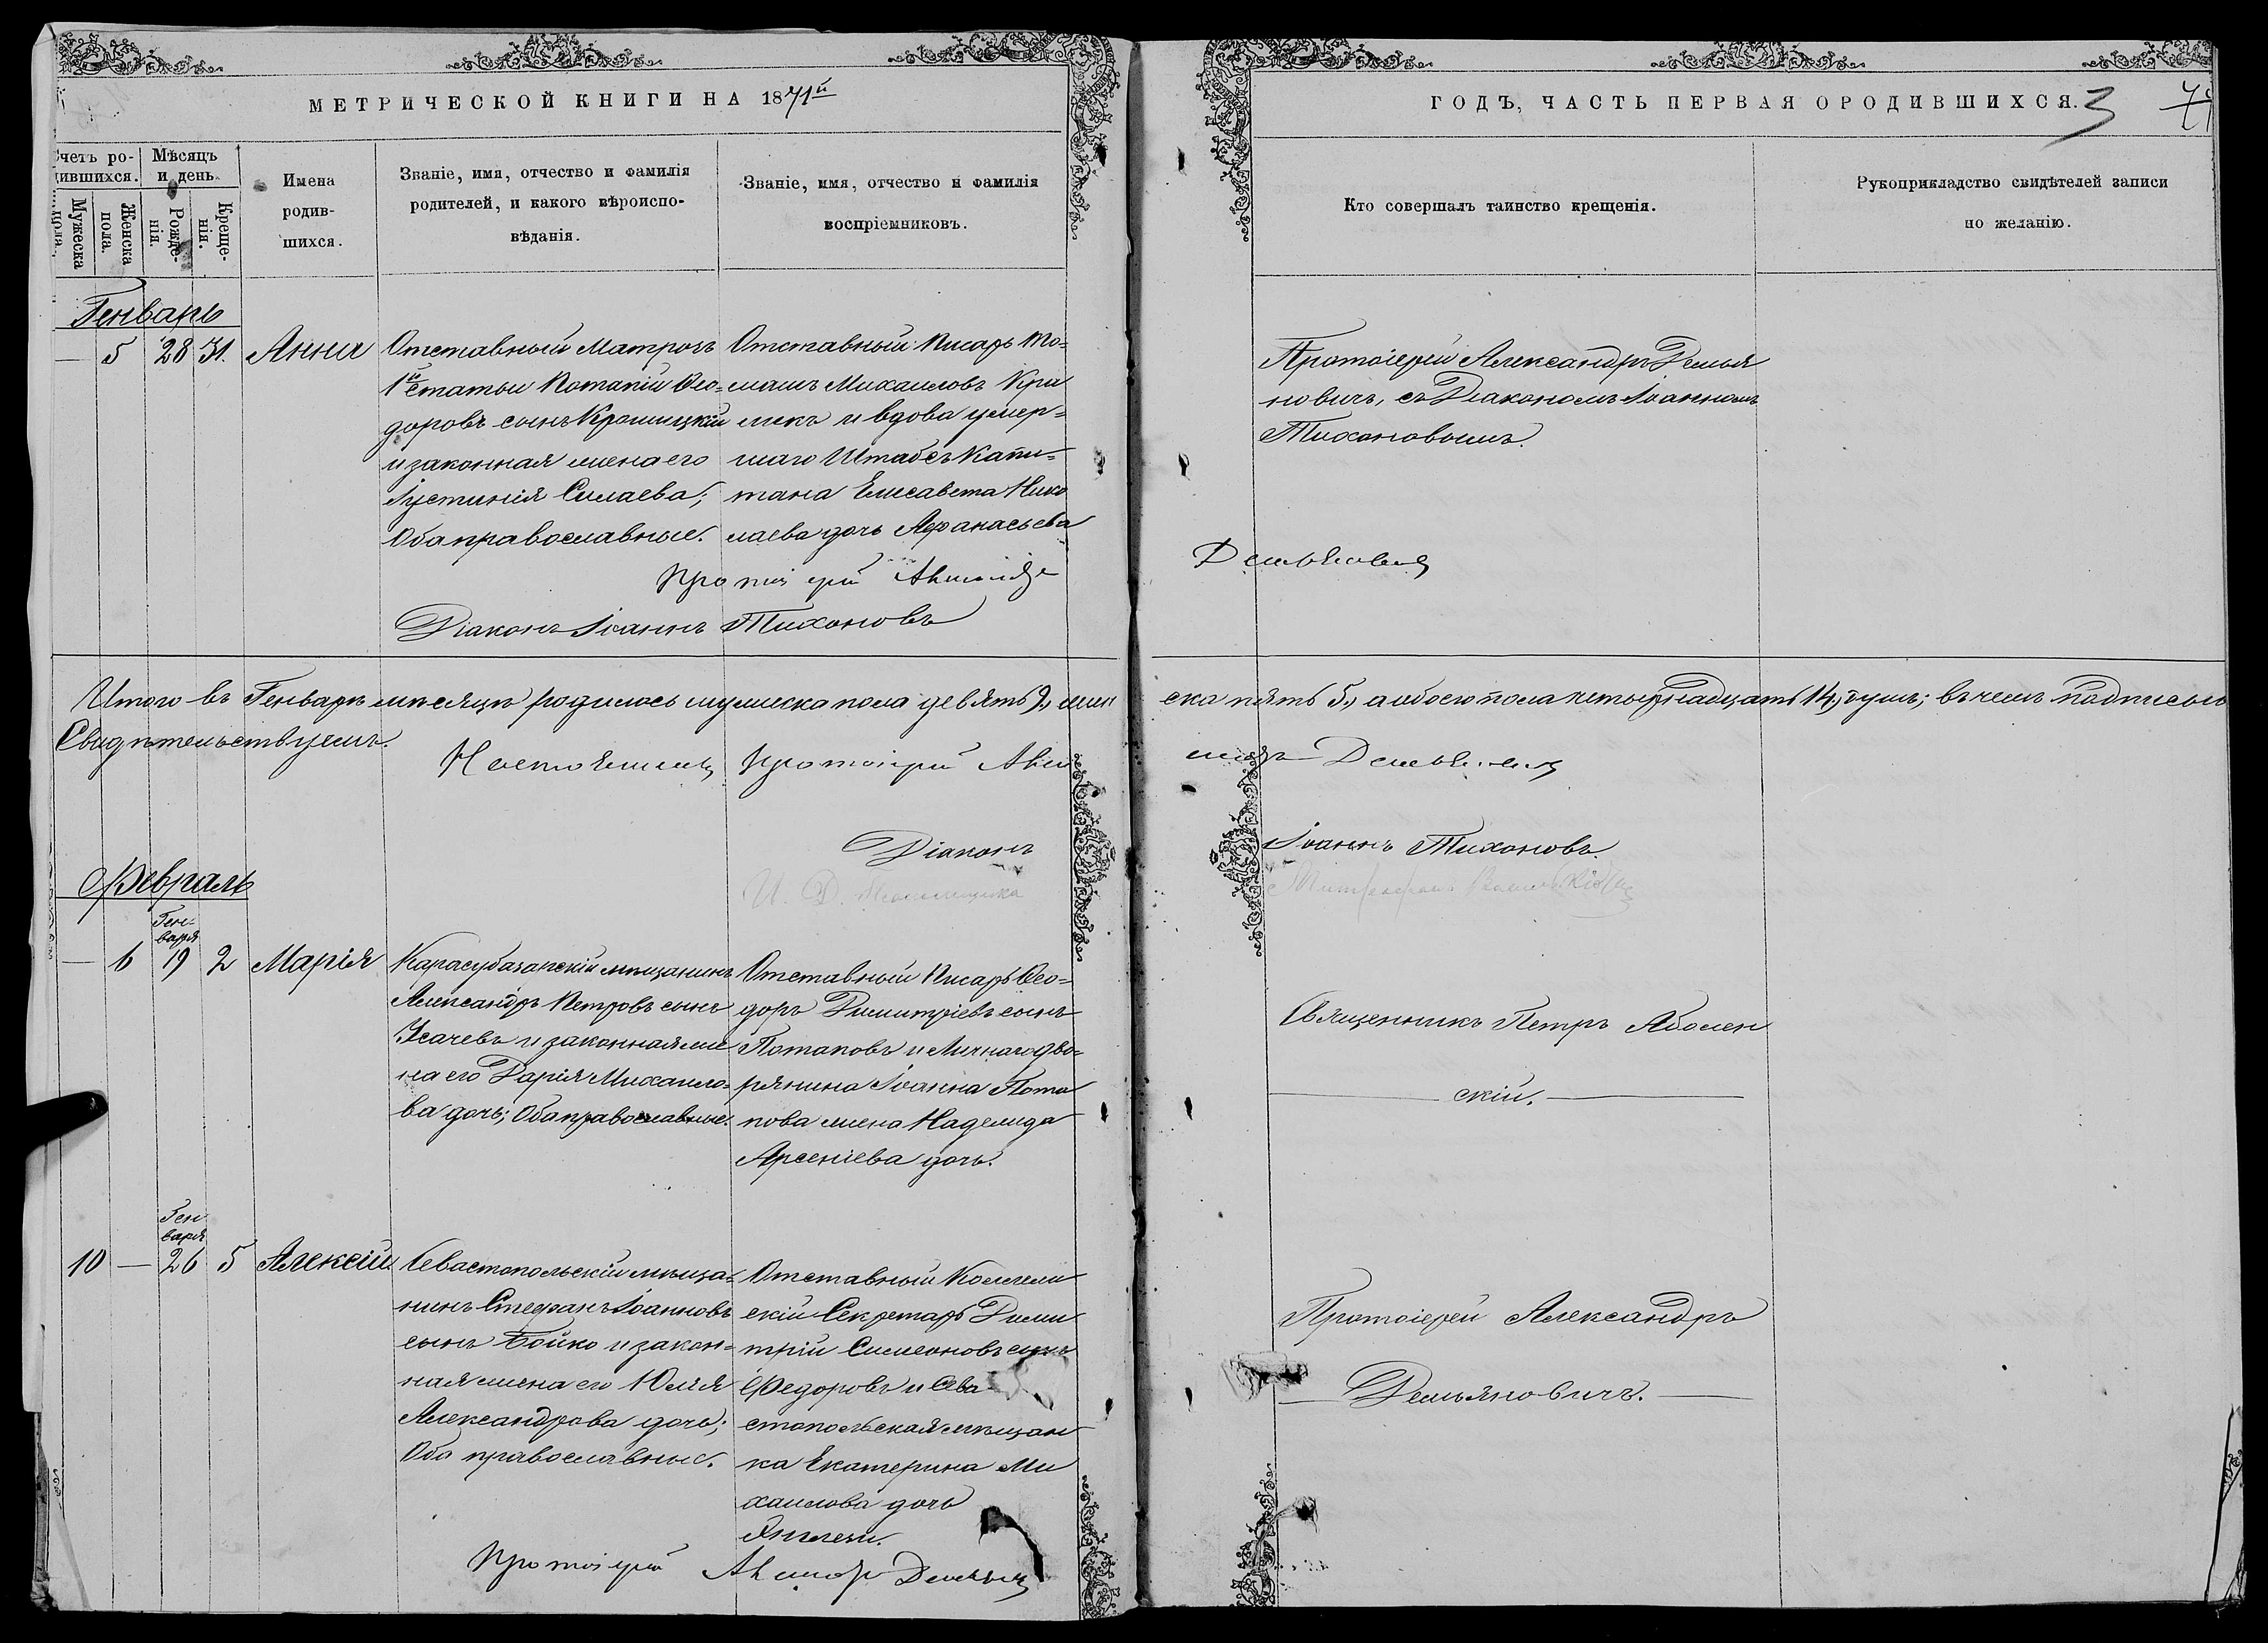 МЕТРИЧЕСКОЙ КНИГИ НА 1871й
ГОДЪ, ЧАСТЬ ПЕРВАЯ О РОДИВШИХСЯ. 3
Счетъ ро-
дившихся.
Мѣсяцъ
и день.
Мужеска
пола.
Женска
пола.
Рожде-
нія.
Креще-
нія.
Имена
родив-
шихся.
Званіе, имя, отчество и фамилія
родителей, и какого вѣроиспо-
вѣданія.
Званіе, имя, отчество и фамилія
воспріемниковъ.
Кто совершалъ таинство крещенія.
Рукоприкладство свидѣтелей записи
по желанію.
Генварь
— 5 28 31. Анна
Отставный Матрозъ
1й статьи Потапій Ѳео=
доровъ сынъ
и законная жена его
Іустинія Силаева;
Оба православные.
Отставный Писарь То=
машъ Михаиловъ Кри
и вдова умер=
шаго Штабсъ Капи=
тана Елисавета Нико
лаева дочь Афанасьева
Протоіерей Александръ Демья
новичъ, съ Діакономъ Іоанномъ
Тихоновымъ.
Протоіерей
Діаконъ Іоаннъ Тихоновъ
Итого въ Генварѣ мѣсяцѣ родилось мужеска пола девять 9, жен
ска пять 5, а обоего пола четырнадцать 14, душъ; въ чемъ подписомъ
Свидѣтельствуемъ.
Протоіерей
Діаконъ
Іоаннъ Тихоновъ.
Февраль
Ген-
варя
— 6 19 2 Марія
Карасубазарскій мѣщанинъ
Александръ Петровъ сынъ
Усачевъ и законная же
на его Дарія Михаило=
ва дочь; Оба православные.
Отставный Писарь Ѳео=
доръ Димитріевъ сынъ
Потаповъ и Личнаго дво=
рянина Іоанна Пота
пова жена Надежда
Арсеніева дочь.
Священникъ Петръ Аболен
скій.
Ген
варя
10 — 26 5 Алексій
Севастопольскій мѣща=
нинъ Стефанъ Іоанновъ
сынъ Бойко и закон=
ная жена его Юлія
Александрова дочь;
Оба православные.
Отставный Коллежи
скій Секретарь Дими
трій Симеоновъ сынъ
Федоровъ и Сева
стопольская мѣщан
ка Екатерина Ми
хаилова дочь
Протоіерей Александръ
Демьяновичъ.
Протоіерей